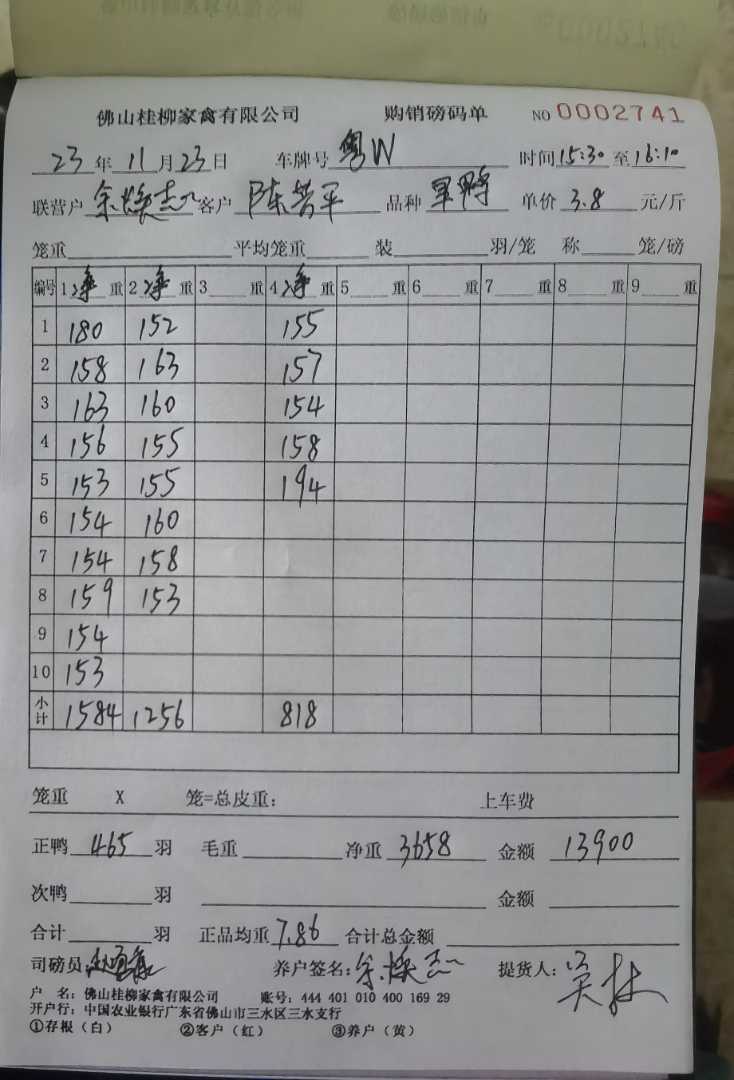 佛山桂柳家禽有限公司 购销磅码单 NO 0002741
23年11月23日 车牌号 粤W 时间15:30至16:10
联营户 余焕志 客户 品种 单价 3.8 元/斤
笼重 平均笼重 装 羽/笼 称 笼/磅
编号 1净重 2净重 3 重 4净重 5 重 6 重 7 重 8 重 9 重
1 180 152 155
2 158 163 157
3 163 160 154
4 156 155 158
5 153 155 194
6 154 160
7 154 158
8 159 153
9 154
10 153
小计 1584 1256 818
笼重 X 笼=总皮重: 上车费
正鸭 465 羽 毛重 净重 3658 金额 13900
次鸭 羽 金额
合计 羽 正品均重 7.86 合计总金额
司磅员: 养户签名: 余焕志 提货人: 吴林
户 名: 佛山桂柳家禽有限公司 账号: 444 401 010 400 169 29
开户行: 中国农业银行广东省佛山市三水区三水支行
①存根(白) ②客户(红) ③养户(黄)